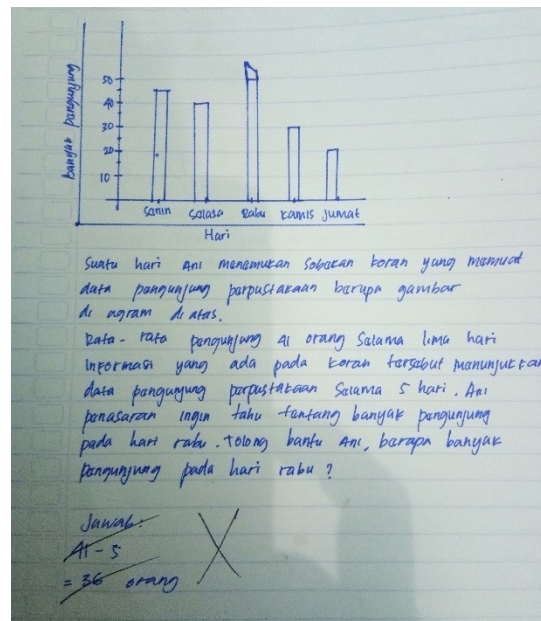 Banyak Pengunjung
50
40
30
20
10
Senin Selasa Rabu Kamis Jumat
Hari
Suatu hari Ani menemukan sobekan koran yang memuat
data pengunjung perpustakaan berupa gambar
di agram di atas.
Rata-rata pengunjung 41 orang Selama lima hari
Informasi yang ada pada koran tersebut menunjukkan
data pengunjung perpustakaan Selama 5 hari. Ani
penasaran ingin tahu tentang banyak pengunjung
pada hari rabu. Tolong bantu Ani, berapa banyak
pengunjung pada hari rabu ?
Jawab:
41 - 5
= 36 orang